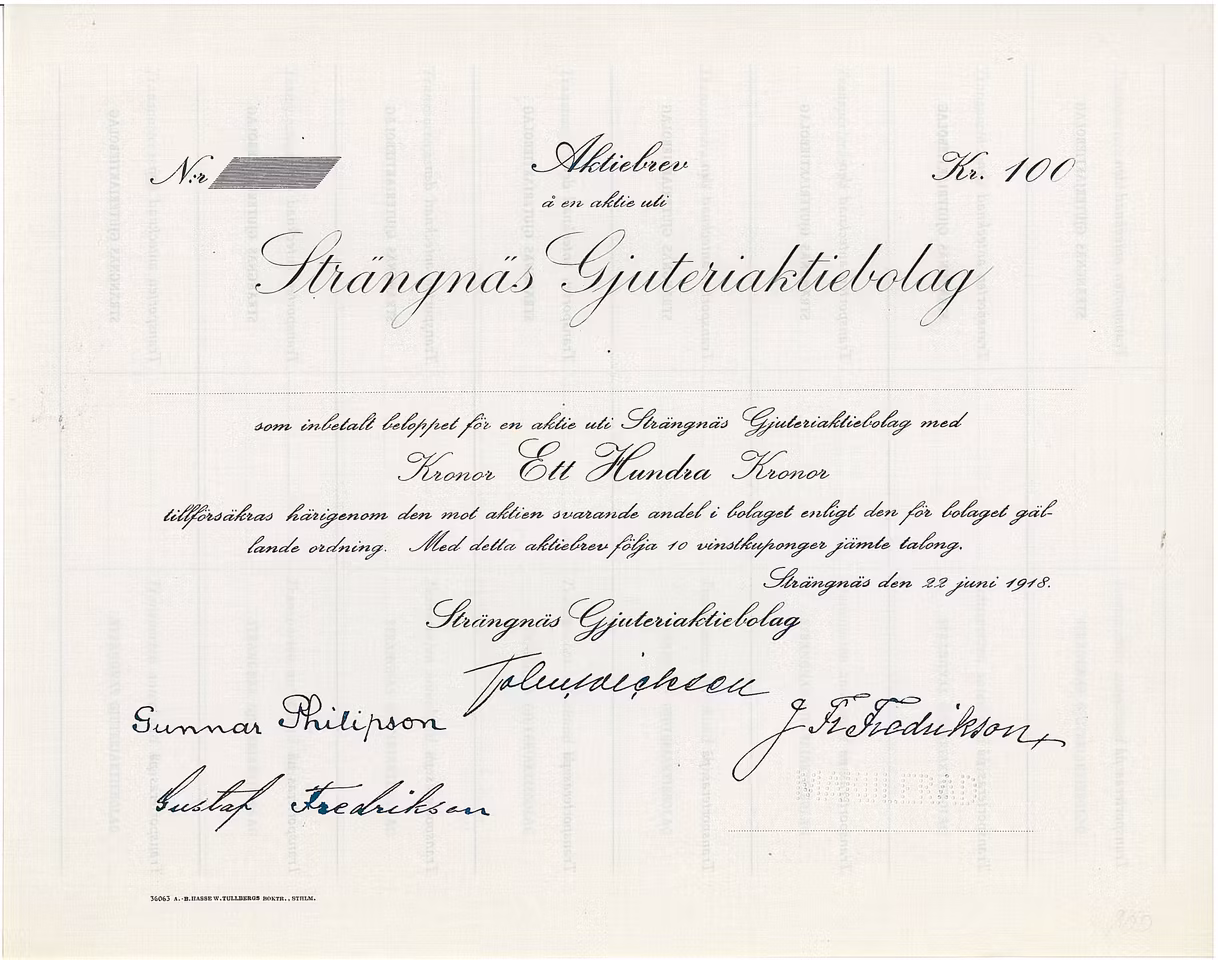 N:r
Aktiebrev
Kr. 100
å en aktie uti
Strängnäs Gjuteriaktiebolag
som inbetalt beloppet för en aktie uti Strängnäs Gjuteriaktiebolag med
Kronor Ett Hundra Kronor
tillförsäkras härigenom den mot aktien svarande andel i bolaget enligt den för bolaget gäl-
lande ordning. Med detta aktiebrev följa 10 vinstkuponger jämte talong.
Strängnäs den 22 juni 1918.
Strängnäs Gjuteriaktiebolag
Gunnar Philipson
J Fr Fredrikson
Gustaf Fredrikson
MAKULERAD
36063 A.-B. HASSE W. TULLBERGS BOKTR., STHLM.